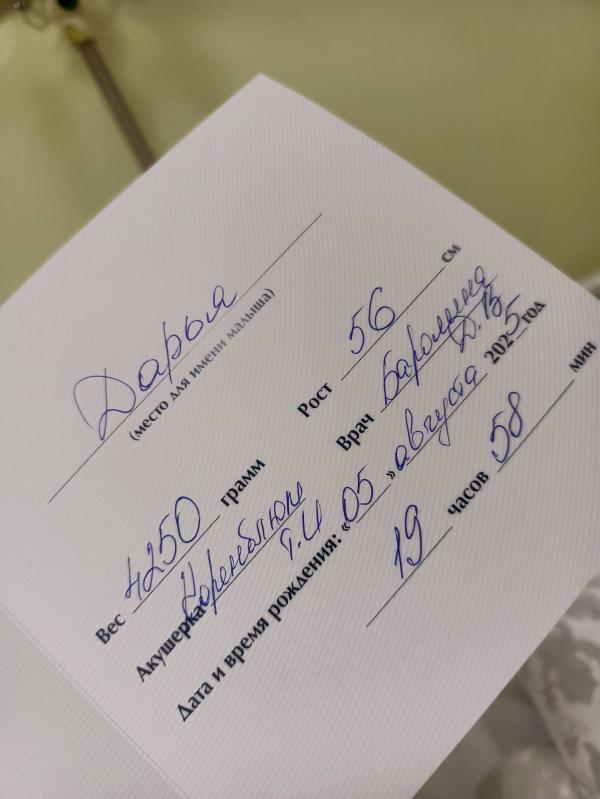 Дарья
(место для имени малыша)
Вес 4250 грамм Рост 56 см
Акушерка Врач
Т.И Д.В
Дата и время рождения: «05» августа 2025 год
19 часов 58 мин